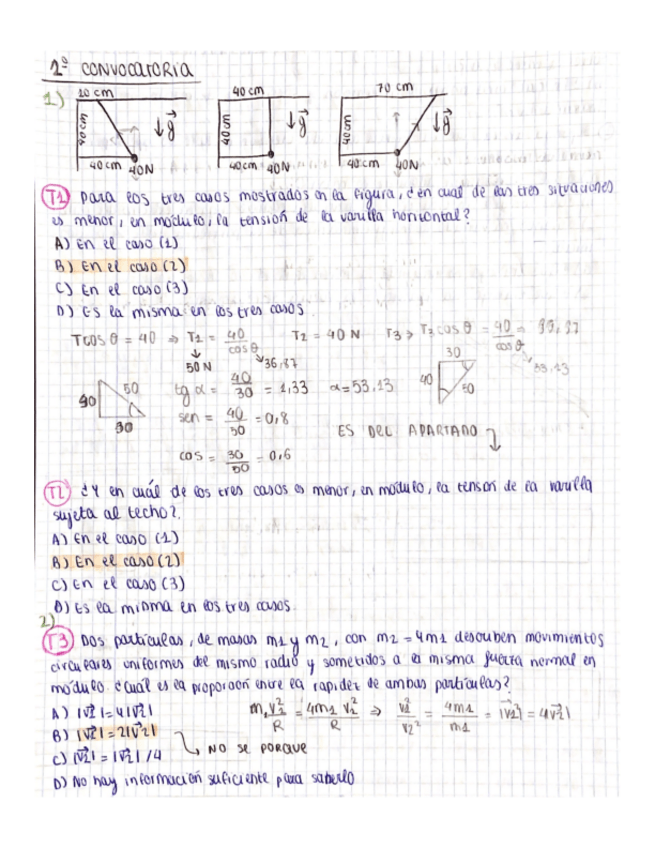 2ª CONVOCATORIA
1)
10 cm 40 cm 70 cm
40 cm g 40 cm g 40 cm g
40 cm 40N 40 cm 40N 40 cm 40N
T1 Para los tres casos mostrados en la figura, ¿en cual de las tres situaciones
es menor, en modulo, la tensión de la varilla horizontal?
A) En el caso (1)
B) En el caso (2)
C) En el caso (3)
D) Es la misma en los tres casos
Tcos θ = 40 ⇒ T1 = 40/cosθ T2 = 40 N T3 → T3 cos θ = 40/cosθ =
50 N 36,87 53,13
40 50 30
tg α = 40/30 = 1,33 α = 53,13
30 40 50
sen = 40/50 = 0,8
ES DEL APARTADO
cos = 30/50 = 0,6
T2 ¿Y en cuál de los tres casos es menor, en módulo, la tensón de la varilla
sujeta al techo?
A) En el caso (1)
B) En el caso (2)
C) En el caso (3)
D) Es la misma en los tres casos.
2)
T3 Dos partículas, de masas m1 y m2, con m2 = 4m1 describen movimientos
circulares uniformes del mismo radio y sometidos a la misma fuerza normal en
módulo. ¿Cuál es la proporción entre la rapidez de ambas partículas?
A) |v1| = 4|v2| m1v1²/R = 4m1 v2²/R ⇒ v1²/v2² = 4m1/m1 = |v1| = 4|v2|
B) |v1| = 2|v2|
NO SE PORQUE
C) |v1| = |v2| /4
D) No hay información suficiente para saberlo